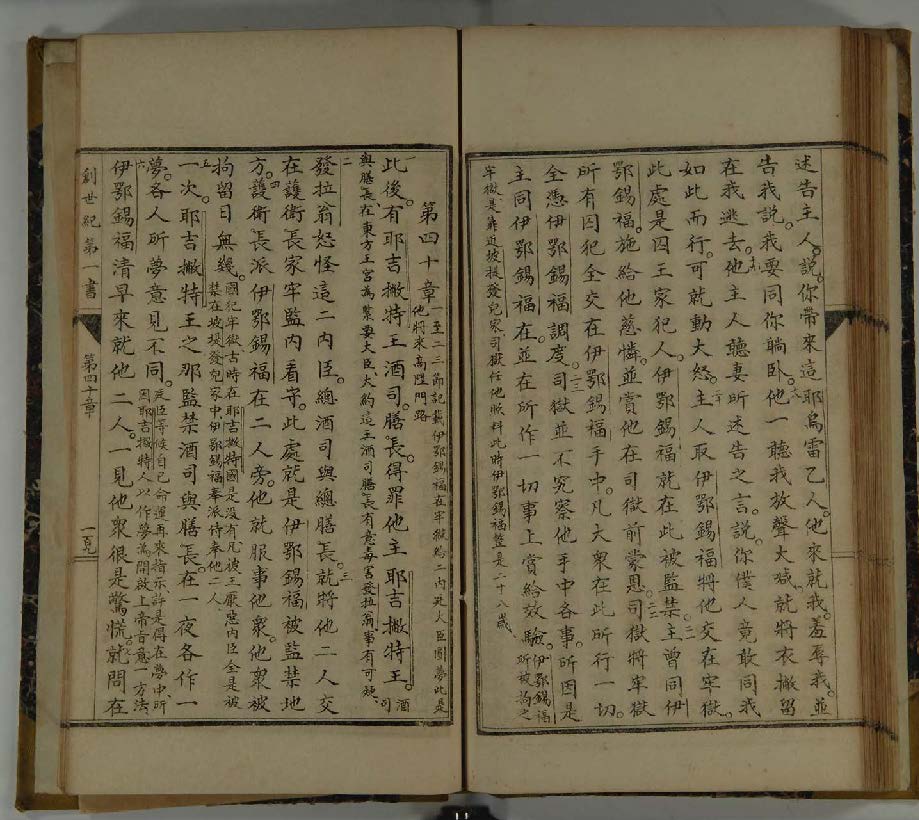 述告主人。說。你帶來這耶烏雷乙人。他來就我。羞辱我。並
告我說。我要同你躺臥。他一聽我放聲大喊。就將衣撇留
在我逃去。他主人聽妻所述告之言。說。你僕人竟敢同我
如此而行。可就動大怒。主人取伊鄂錫福將他交在牢獄。
此處是囚王家犯人。伊鄂錫福就在此被監禁。主曾同伊
鄂錫福。施給他慈憐。並賞他在司獄前蒙恩。司獄將牢獄
所有囚犯全交在伊鄂錫福手中。凡大衆在此所行一切
全憑伊鄂錫福調度。司獄並不究察他手中各事。所因是
主同伊鄂錫福在。並在所作一切事上賞給效驗。伊鄂錫福所被拘之
牢獄。是靠近坡提發兒家司獄任他照料此時伊鄂錫福整是二十八歲。
第四十章 一至二三節記載伊鄂錫福在牢獄給二內廷大臣圓夢此是他將來高陞門路
此後。有耶吉撇特王酒司。膳長。得罪他主耶吉撇特王。酒司
與膳長在東方王宮為緊要大臣大約這王酒司膳長有意毒害發拉翁事有可疑
二發拉翁怒怪這二內臣。總酒司與總膳長。三就將他二人交
在護衛長家牢監內看守。此處就是伊鄂錫福被監禁地
方。四護衛長派伊鄂錫福在二人旁。他就服事他衆。他衆被
拘留日無幾。國犯牢獄古時在耶吉撇特國是沒有凡被王厭惡內臣全是被禁在坡提發兒家中伊鄂錫福奉派侍奉他二人
五一次。耶吉撇特王之那監禁酒司與膳長。在一夜各作一
夢。各人所夢意見不同。廷臣等候自已命運再來指示許是得在夢中所因耶吉撇特人以作夢為開啟上帝旨意一方法
六伊鄂錫福清早來就他二人。一見他衆很是驚慌。七就問在
創世紀第一書
第四十章